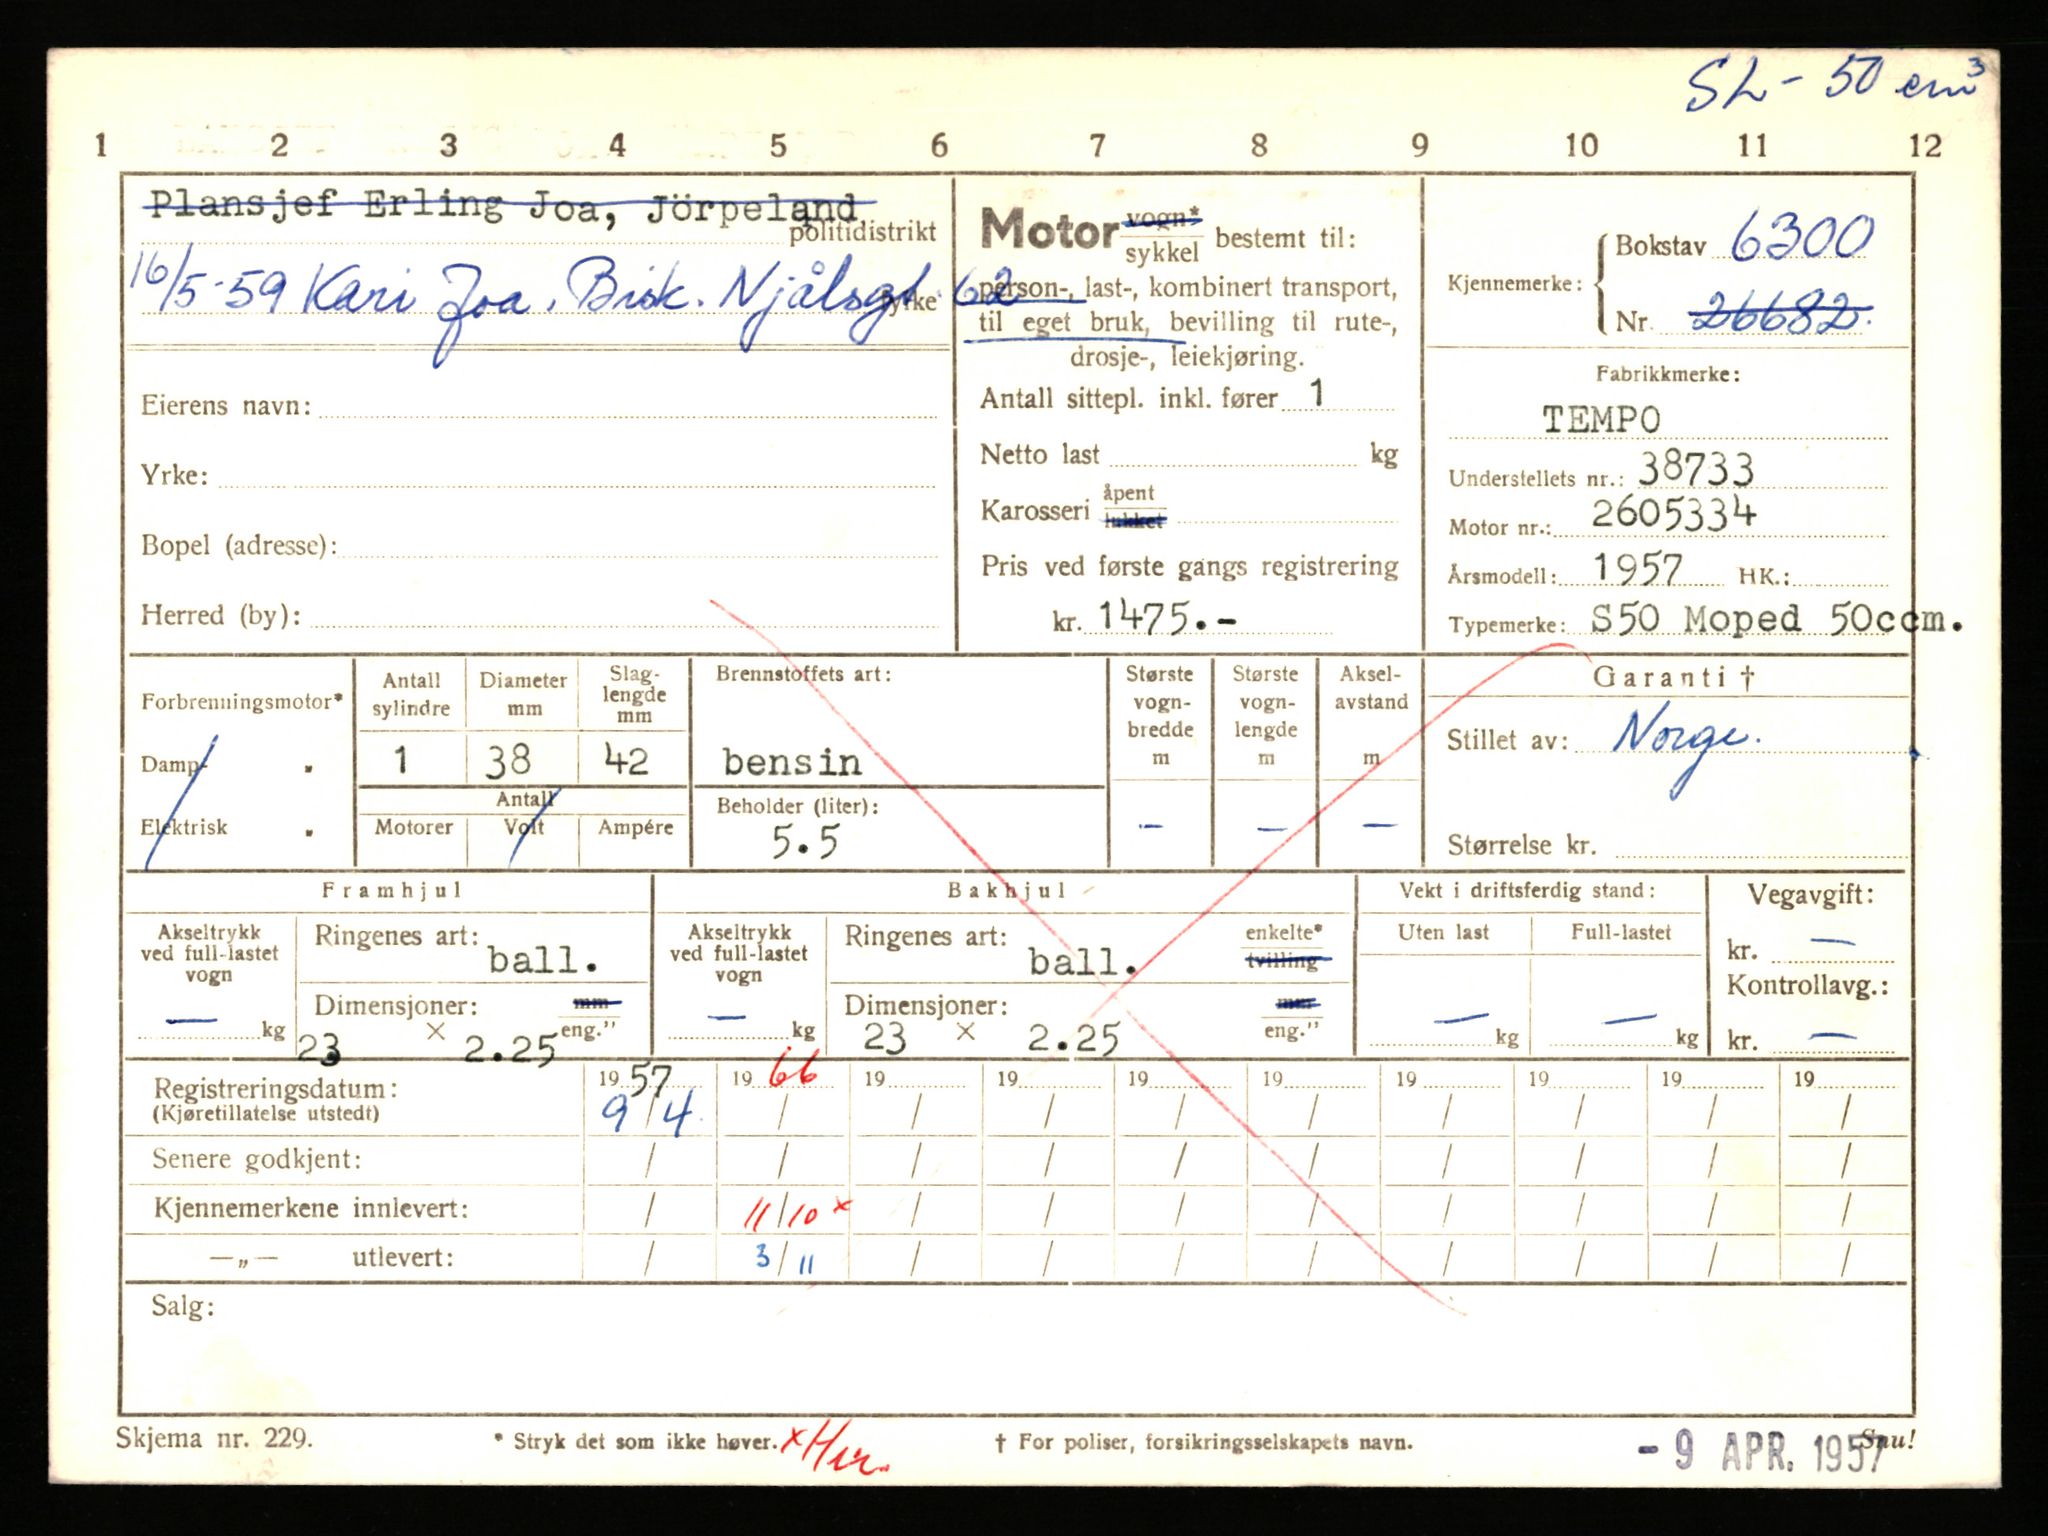 SL - 50 cm³
1 2 3 4 5 6 7 8 9 10 11 12
Plansjef Erling Joa, Jörpeland
politidistrikt
16/5-59 Kari Joa. Bisk. Njålsgt 62
yrke
Eierens navn:
Yrke:
Bopel (adresse):
Herred (by):
Motor vogn* / sykkel bestemt til:
person-, last-, kombinert transport,
til eget bruk, bevilling til rute-,
drosje-, leiekjøring.
Antall sittepl. inkl. fører 1
Netto last kg
Karosseri åpent / lukket
Pris ved første gangs registrering
kr. 1475.-
Kjennemerke: Bokstav 6300
Nr. 26682
Fabrikkmerke:
TEMPO
Understellets nr.: 38733
Motor nr.: 2605334
Årsmodell: 1957 HK.:
Typemerke: S50 Moped 50ccm.
Forbrenningsmotor*
Damp- „
Elektrisk „
Antall sylindre
1
Diameter mm
38
Slag-
lengde
mm
42
Antall
Motorer Volt Ampére
Brennstoffets art:
bensin
Beholder (liter):
5.5
Største
vogn-
bredde
m
–
Største
vogn-
lengde
m
–
Aksel-
avstand
m
–
Garanti †
Stillet av: Norge.
Størrelse kr.
Framhjul
Akseltrykk
ved full-lastet
vogn
– kg
Ringenes art:
ball.
Dimensjoner: mm
23 × 2.25 eng."
Bakhjul
Akseltrykk
ved full-lastet
vogn
– kg
Ringenes art: enkelte*
ball. tvilling
Dimensjoner: mm
23 × 2.25 eng."
Vekt i driftsferdig stand:
Uten last Full-lastet
– kg – kg
Vegavgift:
kr. –
Kontrollavg.:
kr. –
Registreringsdatum: 1957 1966 19 19 19 19 19 19 19 19
(Kjøretillatelse utstedt) 9/4 / / / / / / / / /
Senere godkjent: / / / / / / / / / /
Kjennemerkene innlevert: / 11/10 x / / / / / / / /
—„— utlevert: / 3/11 / / / / / / / /
Salg:
Skjema nr. 229. * Stryk det som ikke høver. x † For poliser, forsikringsselskapets navn. Snu!
- 9 APR. 1957